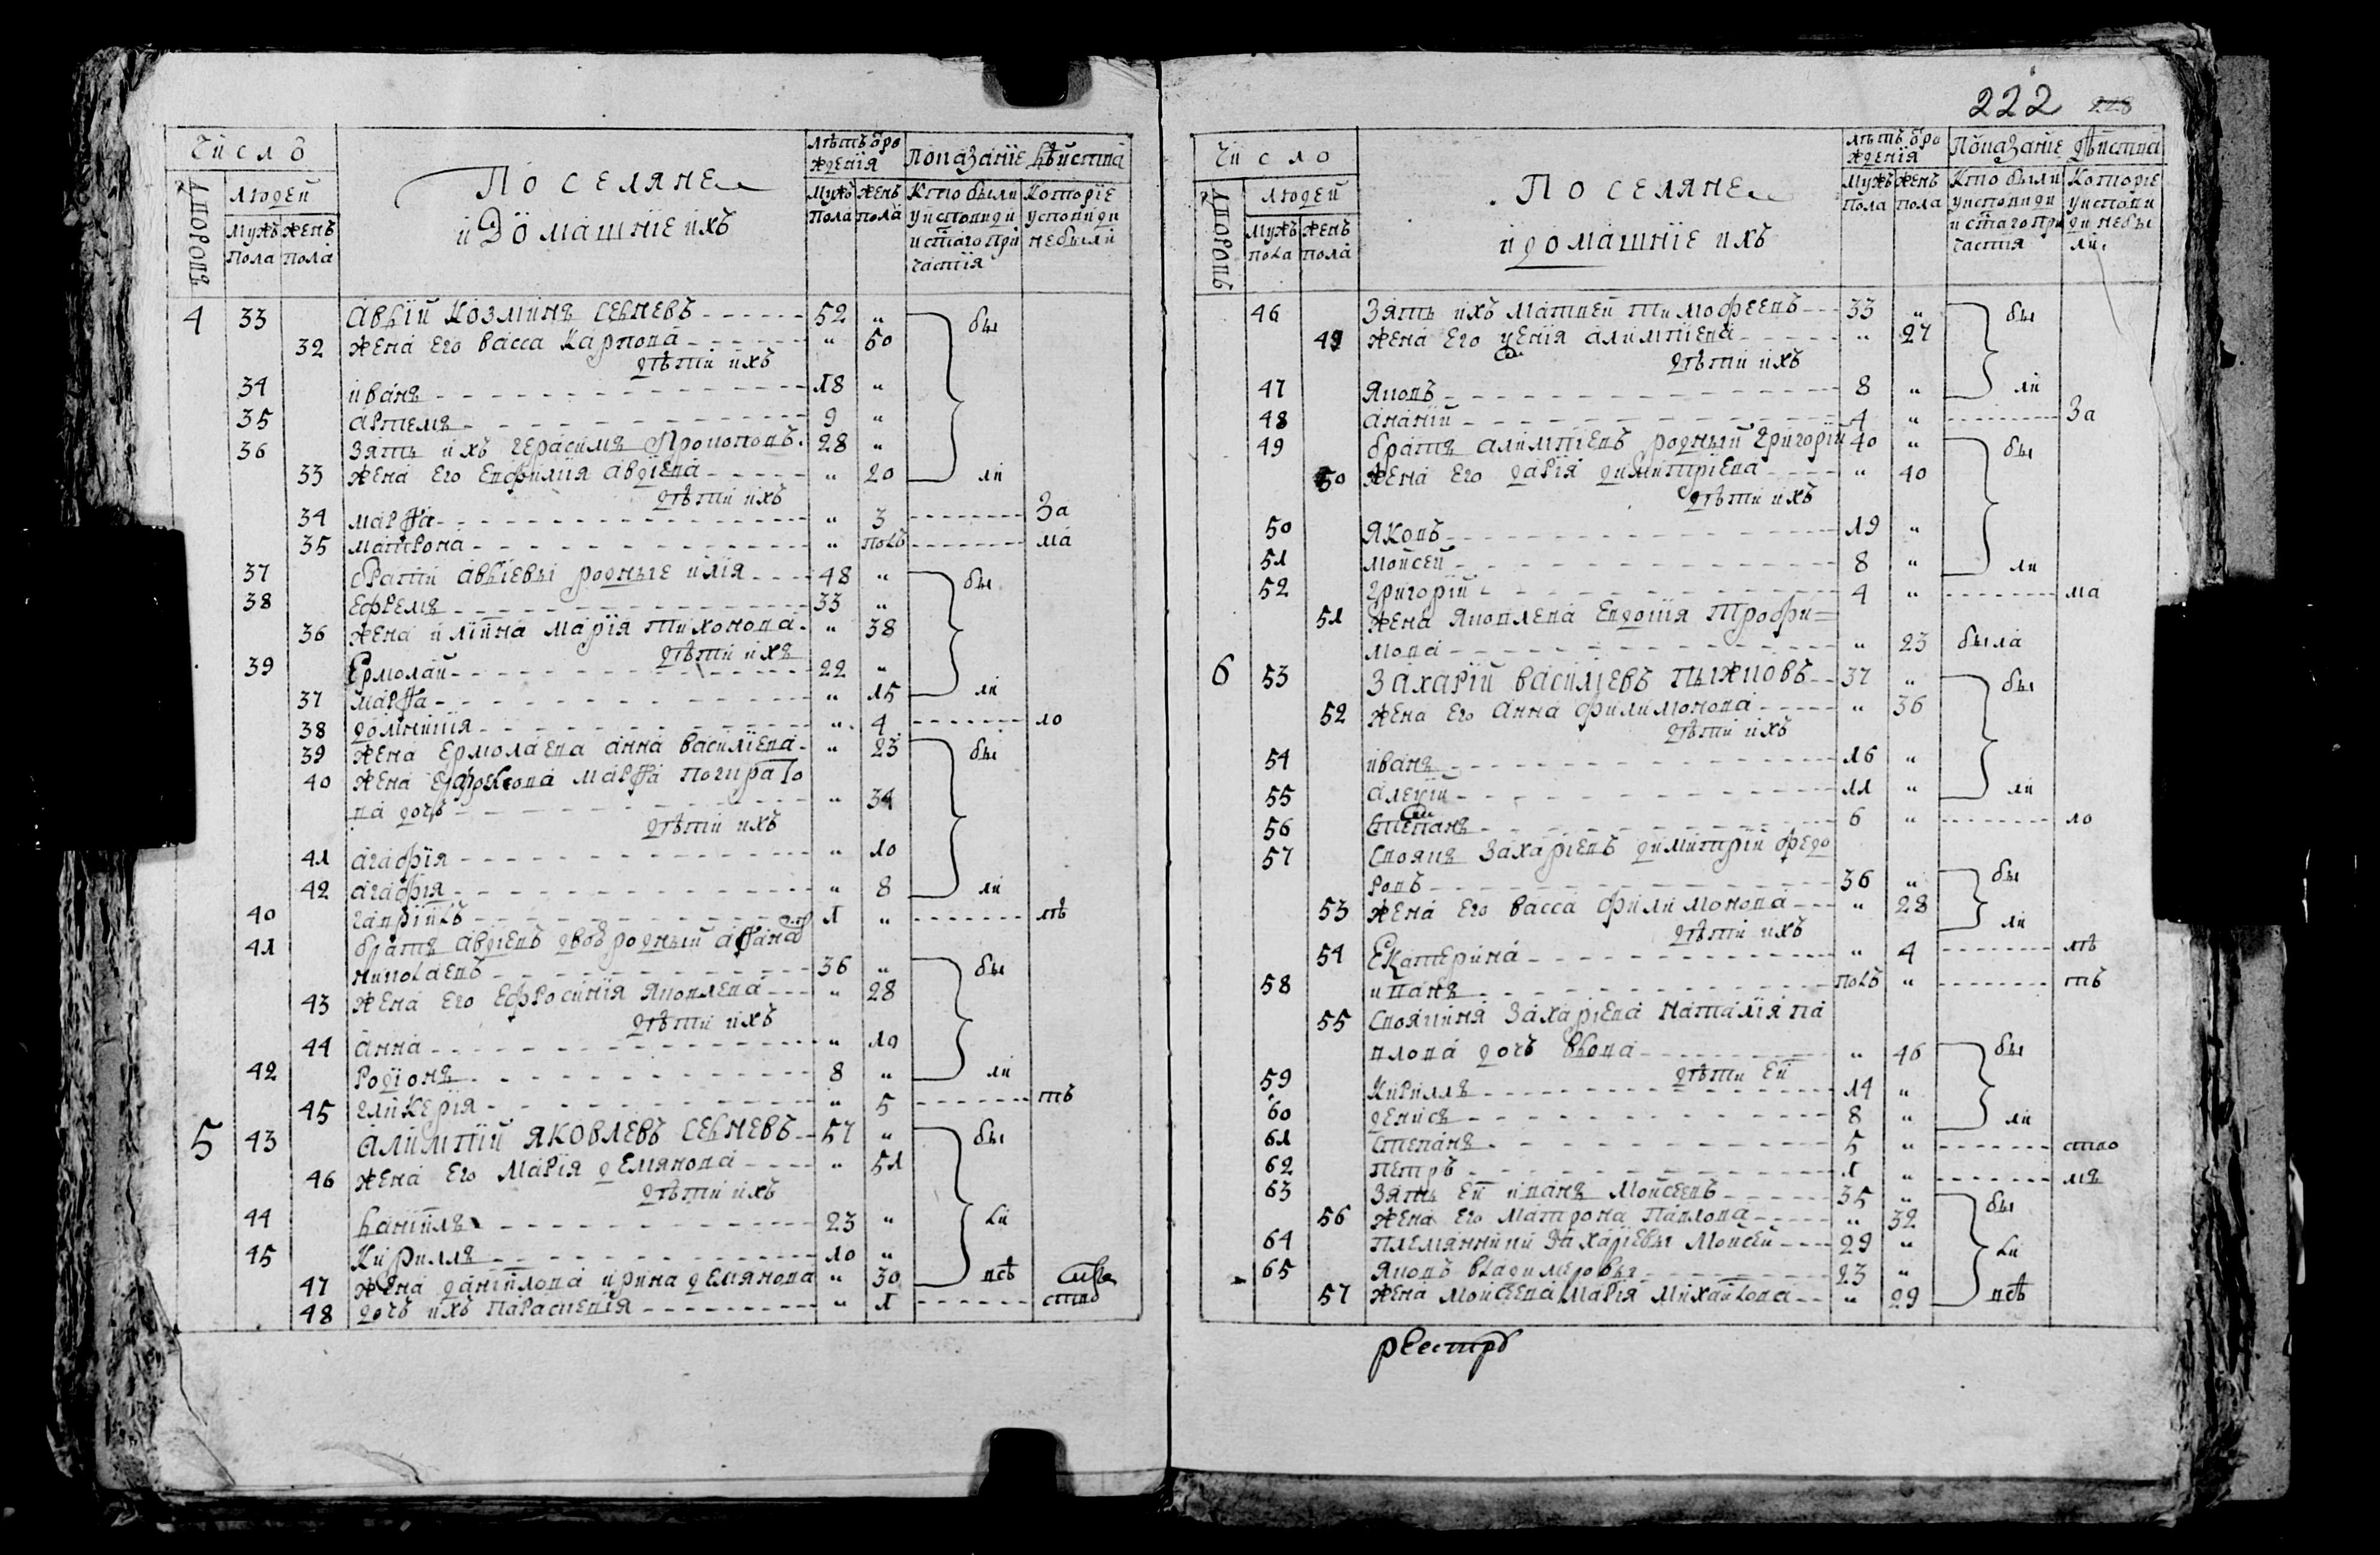 Число
Дворовъ
Людей
Мужъ Пола
Женъ Пола
Поселяне
и Домашніе ихъ
Лѣтъ ѿ рожденія
Мужъ Пола
Женъ пола
Показаніе дѣйства
Кто были у исповиди и стаго причастія
Которіе у исповиди не были
4 33 Авдій Козминъ Севневъ 52 „ бы
32 жена его Васса Карпова „ 50
дѣти ихъ
34 иванъ 18 „
35 артемъ 9 „
36 зять ихъ герасимъ Прокоповъ 28 „
33 жена его Евфимия авдіева „ 20 ли
дѣти ихъ
34 марѳа „ 3 За
35 матрона „ полъ ма
37 брати авдіеви родные илія 48 „ бы
38 ефремъ 33 „
36 жена иліина марія тихонова „ 38
дѣти ихъ
39 Ермолай 22 „
37 марѳа „ 15 ли
38 домникія „ 4 ло
39 жена Ермолаева анна василіева „ 23 бы
40 жена марѳа
ва дочъ „ 34
дѣти ихъ
41 агафія „ 10
42 агафія „ 8 ли
40 гавріилъ 1 „ лѣ
41 братъ авдіевъ двоюродный афана
николаевъ 36 „ бы
43 жена его Ефросинія Яковлева „ 28
дѣти ихъ
44 анна „ 10
42 родіонъ 8 „ ли
45 гликерія „ 5 тъ
5 43 Алимпій Яковлевъ Севневъ 57 „ бы
46 жена его Марія демянова „ 51
дѣти ихъ
44 даніилъ 23 „ ли
45 Кириллъ 10 „
47 жена даніилова ирина демянова „ 30 всѣ
48 дочъ ихъ параскевія „ 1 ство
222 228
Число
Дворовъ
Людей
Мужъ пола
Женъ пола
Поселяне
и домашніе ихъ
Лѣтъ ѿ рожденія
Мужъ Пола
Женъ пола
Показаніе дѣйства
Кто были у исповиди и стаго причастія
Которіе у исповиди не были
46 Зять ихъ матвей тимофеевъ 33 „ бы
49 жена его ксенія алимпіева „ 27
дѣти ихъ
47 Яковъ 8 „ ли
48 ананій 4 „ За
49 братъ алимпіевъ родный григорій 40 „ бы
50 жена его дарія димитріева „ 40
дѣти ихъ
50 Яковъ 19 „
51 мойсей 8 „ ли
52 григорій 4 „ ма
51 жена Яковлева Евдокія Трофи=
мова „ 23 была
6 53 Захарій василіевъ пыжновъ 37 „ бы
52 жена его анна филимонова „ 36
дѣти ихъ
54 иванъ 16 „
55 алексій 11 „ ли
56 Степанъ 6 „ ло
57 Своякъ Захаріевъ димитрій федо
ровъ 36 „ бы
53 жена его васса филимонова „ 28 ли
дѣти ихъ
54 Екатерина „ 4 лѣ
58 иванъ полъ „ тъ
55 Своякиня Захаріева Наталія па
влова дочъ вдова „ 46 бы
дѣти ей
59 Кириллъ 14 „
60 денисъ 8 „ ли
61 Степанъ 5 „ ство
62 петръ 1 „ мъ
63 Зять ей иванъ мойсеевъ 35 „ бы
56 жена его матрона павлова „ 32
64 племянники Захаріевы мойсей 29 „ ли
65 Яковъ владимеровы 23 „
57 жена мойсеева марія михайлова „ 29 всѣ
реестръ